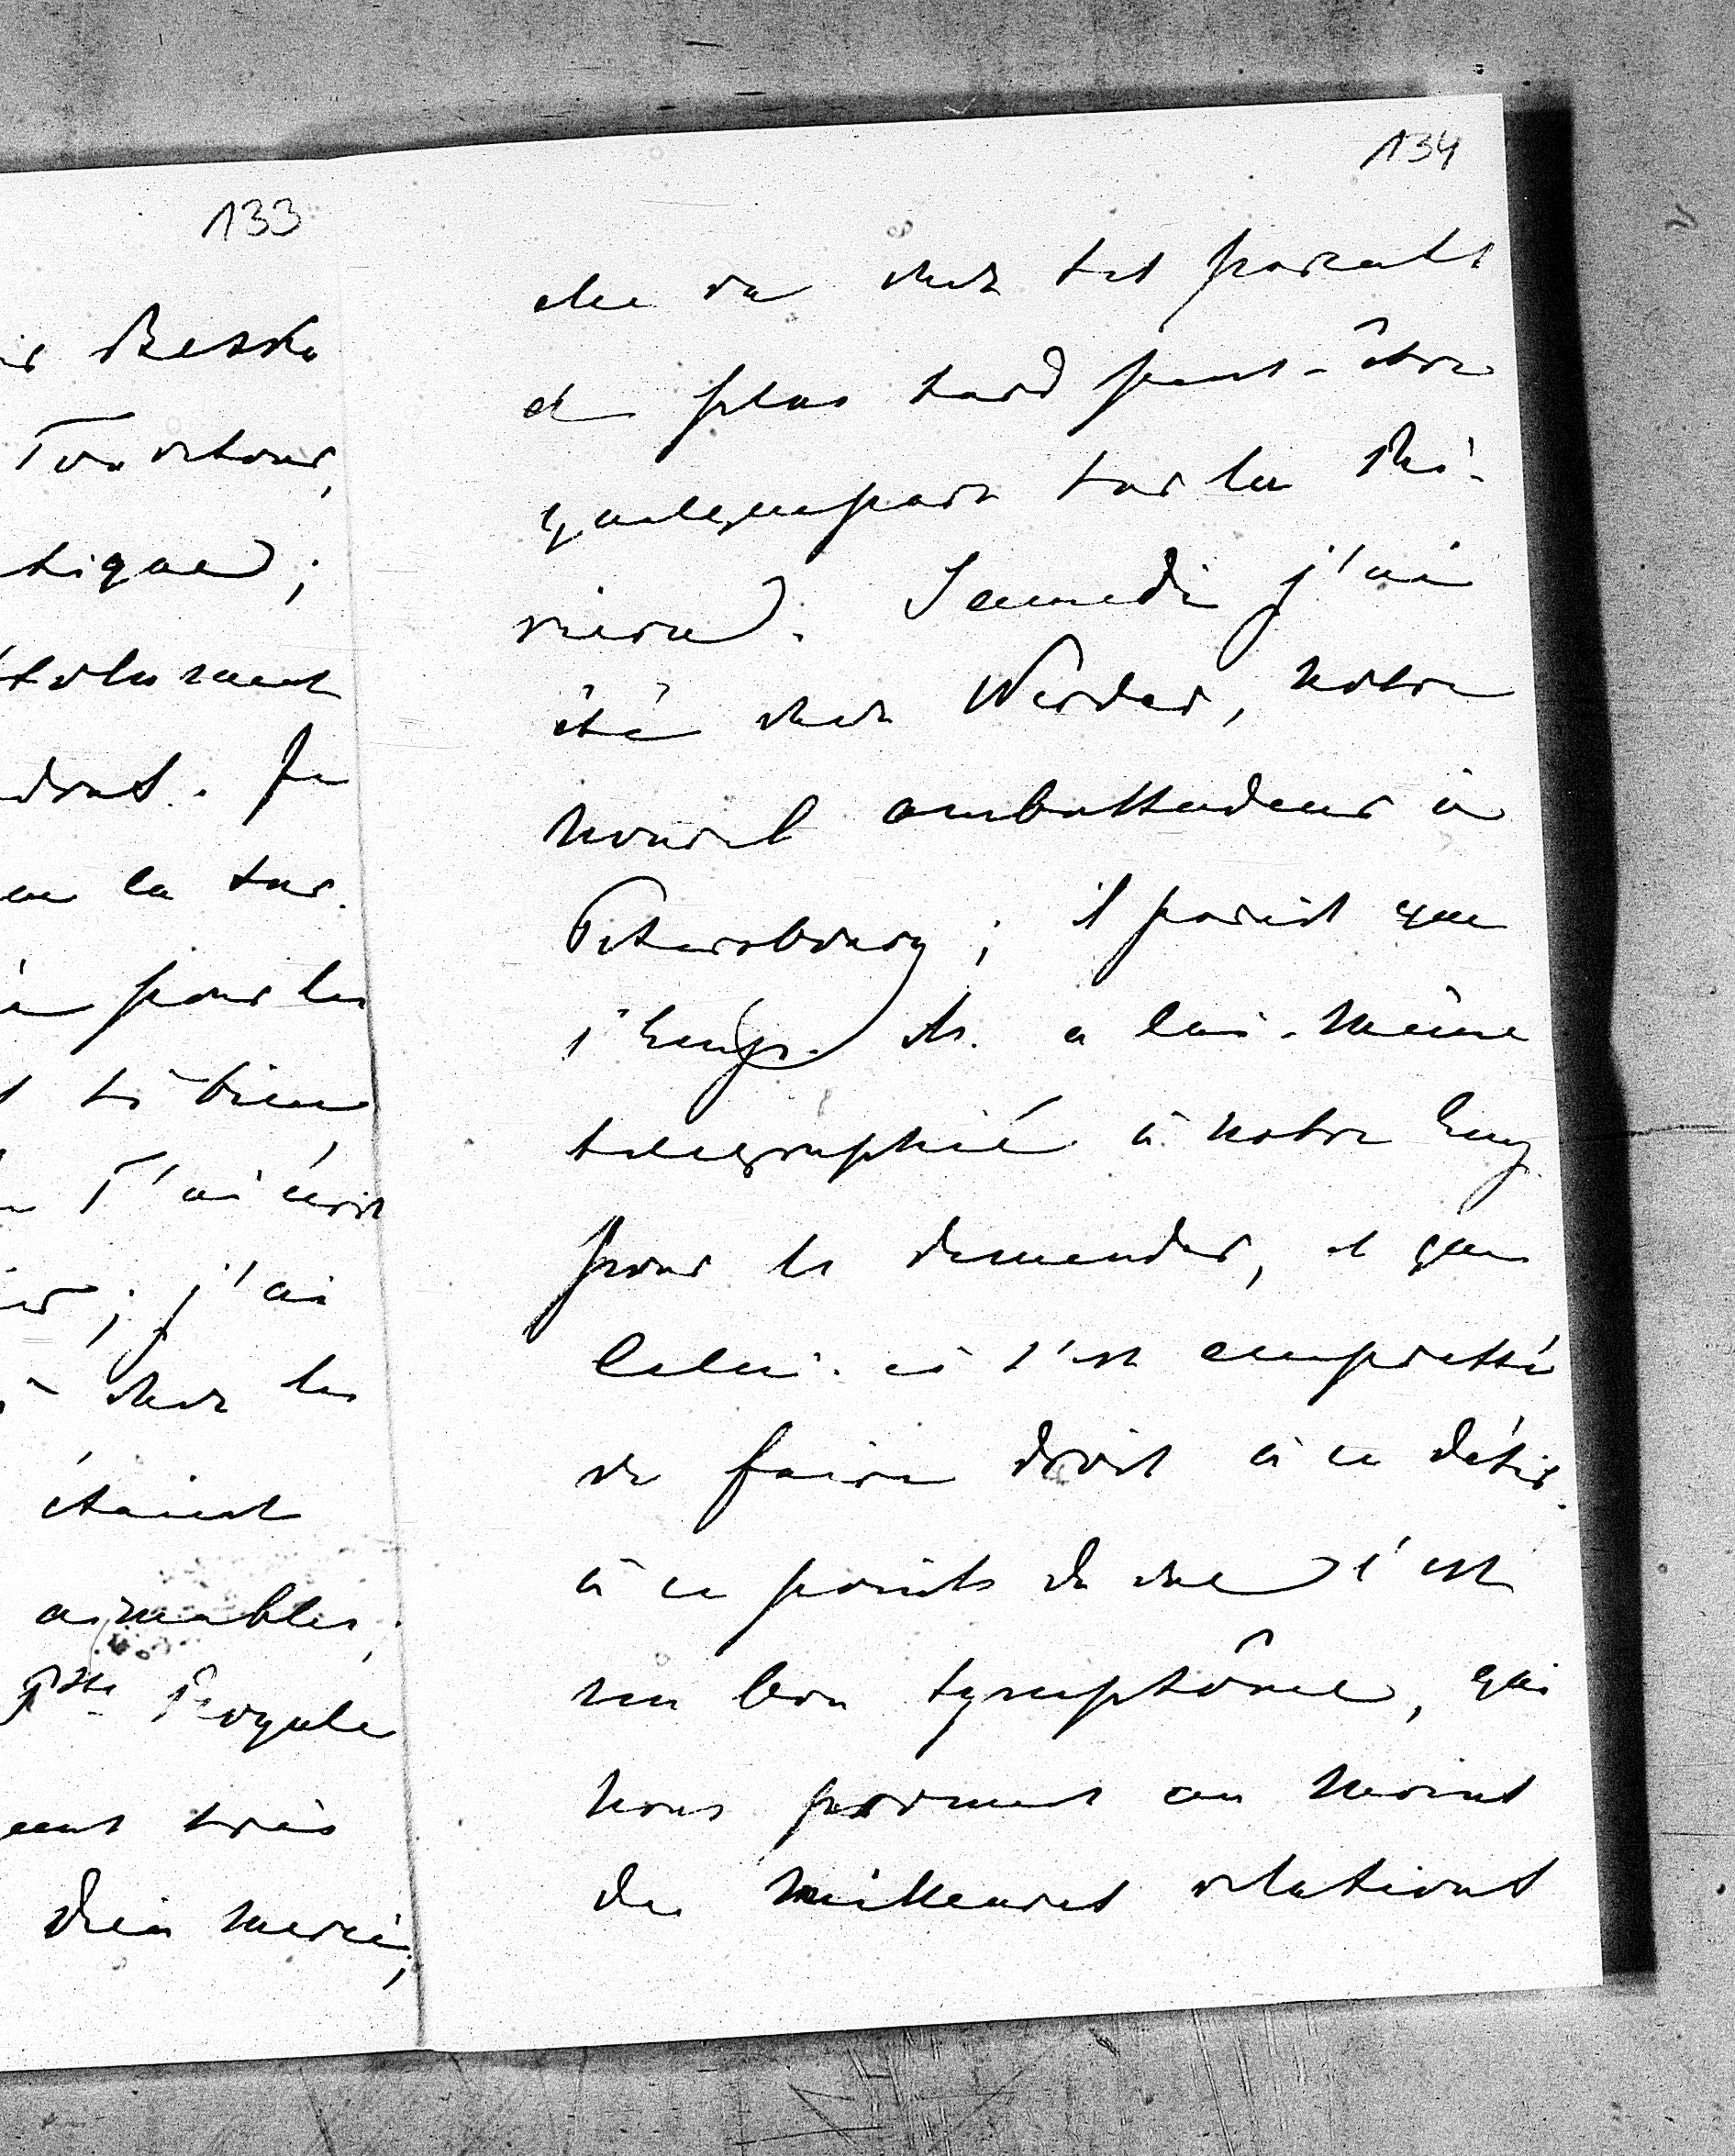 133
Beska
Ton retour,
tique;
absolument
Je
en la sur.
pour les
si bien
T'ai écrit
; j'ai
chez les
étaient
aimables;
Psse Royale
très
Dieu merci;
134
elle va chez ses parents
et plus tard peut-être
quelquepart sur la Ri-
viera. Samedi j'ai
été chez Werder, notre
nouvel ambassadeur à
Petersbourg; il parait que
l'Emp. A. a lui-même
telegraphié à notre Emp.
pour le demander, et que
celui-ci s'est empressé
de faire droit à ce désir.
à ce point de vue c'est
un bon symptôme, qui
nous promet au moins
de meilleures relations